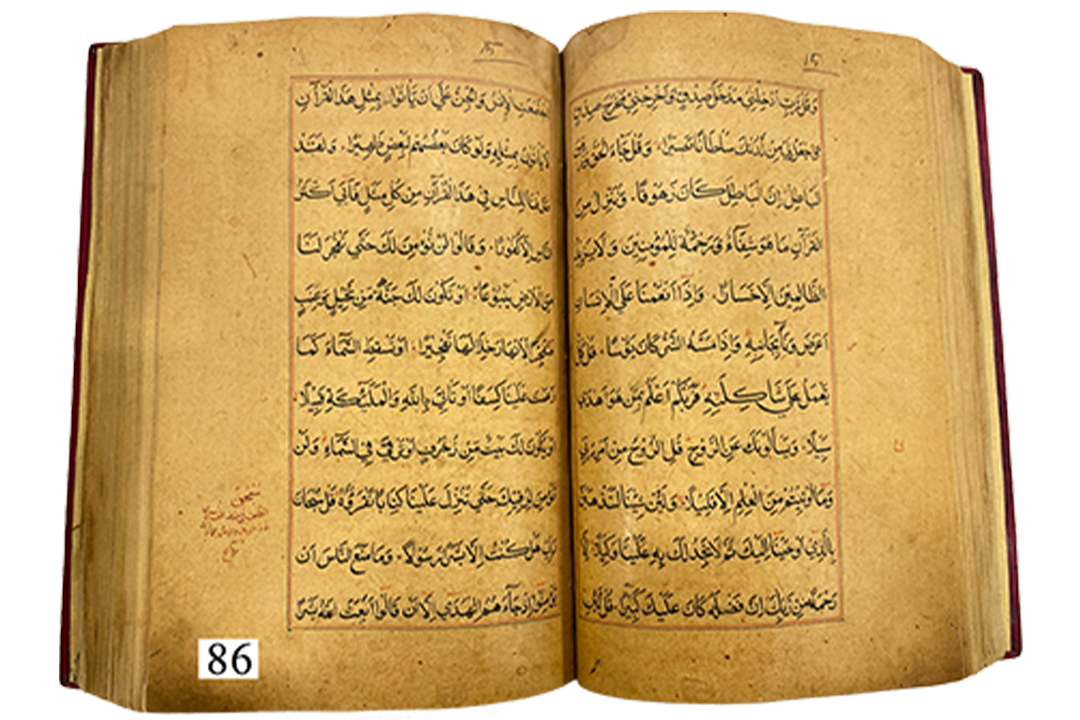 وَقُل رَبِّ اَدْخِلْنِي مُدْخَلَ صِدْقٍ وَاَخْرِجْنِي مُخْرَجَ صِدْقٍ
وَاجْعَل لِي مِن لَدُنْكَ سُلْطَانًا نَصِيرًا وَقُلْ جَاءَ الْحَقُّ وَزَهَقَ
الْبَاطِلُ اِنَّ الْبَاطِلَ كَانَ زَهُوقًا وَنُنَزِّلُ مِنَ
الْقُرْآنِ مَا هُوَ شِفَاءٌ وَرَحْمَةٌ لِلْمُؤْمِنِينَ وَلَا يَزِيدُ
الظَّالِمِينَ اِلَّا خَسَارًا وَاِذَا اَنْعَمْنَا عَلَى الْاِنْسَانِ
اَعْرَضَ وَنَأ بِجَانِبِهِ وَاِذَا مَسَّهُ الشَّرُّ كَانَ يَؤُسًا قُلْ كُلٌّ
يَعْمَلُ عَلَى شَاكِلَتِهِ فَرَبُّكُمْ اَعْلَمُ بِمَنْ هُوَ اَهْدَى
سَبِيلًا وَيَسْأَلُونَكَ عَنِ الرُّوحِ قُلِ الرُّوحُ مِنْ اَمْرِ رَبِّي
وَمَا اُوتِيتُمْ مِنَ الْعِلْمِ اِلَّا قَلِيلًا وَلَئِنْ شِئْنَا لَنَذْهَبَنَّ
بِالَّذِي اَوْحَيْنَا اِلَيْكَ ثُمَّ لَا تَجِدُ لَكَ بِهِ عَلَيْنَا وَكِيلًا اِلَّا
رَحْمَةً مِنْ رَبِّكَ اِنَّ فَضْلَهُ كَانَ عَلَيْكَ كَبِيرًا قُل لَئِنِ
اجْتَمَعَتِ الْاِنْسُ وَالْجِنُّ عَلَى اَنْ يَأْتُوا بِمِثْلِ هَذَا الْقُرْآنِ
لَا يَأْتُونَ بِمِثْلِهِ وَلَوْ كَانَ بَعْضُهُمْ لِبَعْضٍ ظَهِيرًا وَلَقَدْ
صَرَّفْنَا لِلنَّاسِ فِي هَذَا الْقُرْآنِ مِنْ كُلِّ مَثَلٍ فَأَبَى اَكْثَرُ
النَّاسِ اِلَّا كُفُورًا وَقَالُوا لَنْ نُؤْمِنَ لَكَ حَتَّى تَفْجُرَ لَنَا
مِنَ الْاَرْضِ يَنْبُوعًا اَوْ تَكُونَ لَكَ جَنَّةٌ مِنْ نَخِيلٍ وَعِنَبٍ
فَتُفَجِّرَ الْاَنْهَارَ خِلَالَهَا تَفْجِيرًا اَوْ تُسْقِطَ السَّمَاءَ كَمَا
زَعَمْتَ عَلَيْنَا كِسَفًا اَوْ تَأْتِيَ بِاللَّهِ وَالْمَلَئِكَةِ قَبِيلًا
اَوْ يَكُونَ لَكَ بَيْتٌ مِنْ زُخْرُفٍ اَوْ تَرْقَى فِي السَّمَاءِ وَلَنْ
نُؤْمِنَ لِرُقِيِّكَ حَتَّى تُنَزِّلَ عَلَيْنَا كِتَابًا نَقْرَؤُهُ قُلْ سُبْحَانَ
رَبِّي هَلْ كُنْتُ اِلَّا بَشَرًا رَسُولًا وَمَا مَنَعَ النَّاسَ اَنْ
يُؤْمِنُوا اِذْ جَاءَهُمُ الْهُدَى اِلَّا اَنْ قَالُوا اَبَعَثَ اللَّهُ بَشَرًا
86